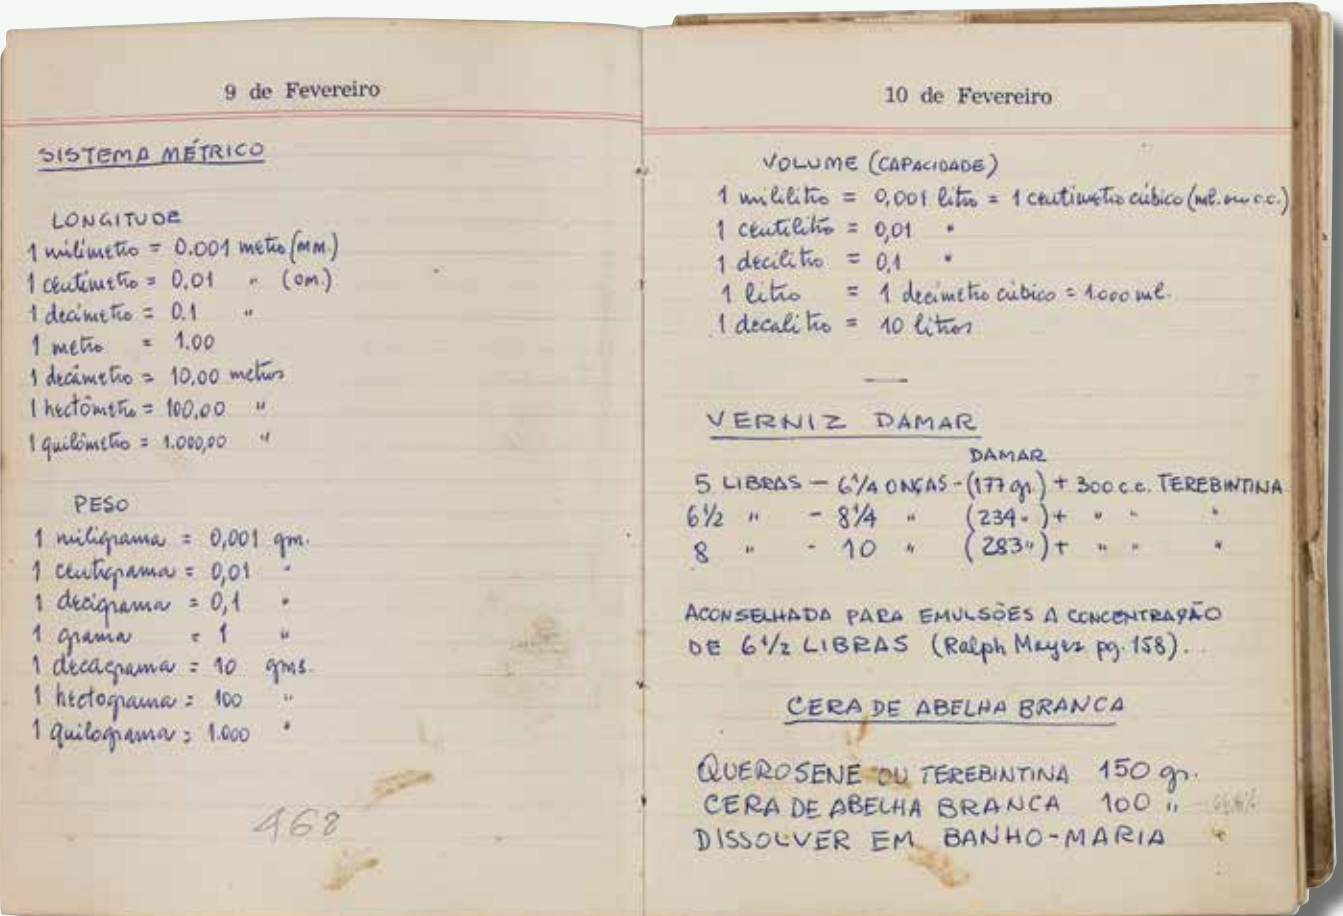 9 de Fevereiro
SISTEMA MÉTRICO
LONGITUDE
1 milímetro = 0.001 metro (mm.)
1 centímetro = 0.01 " (cm.)
1 decímetro = 0.1 "
1 metro = 1.00
1 decâmetro = 10.00 metros
1 hectômetro = 100,00 "
1 quilômetro = 1.000,00 "
PESO
1 miligrama = 0,001 gm.
1 centigrama = 0,01 "
1 decigrama = 0,1 "
1 grama = 1 "
1 decagrama = 10 gms.
1 hectograma = 100 "
1 quilograma = 1.000 "
468
10 de Fevereiro
VOLUME (CAPACIDADE)
1 mililitro = 0,001 litro = 1 centimetro cúbico (ml. ou c.c.)
1 centilitro = 0,01 "
1 decilitro = 0,1 "
1 litro = 1 decimetro cúbico = 1.000 ml.
1 decalitro = 10 litros
VERNIZ DAMAR
DAMAR
5 LIBRAS — 6 1/4 ONÇAS - (177 gr.) + 300 c.c. TEREBINTINA
6 1/2 " - 8 1/4 " (234 " ) + " " "
8 " - 10 " (283 " ) + " " "
ACONSELHADA PARA EMULSÕES A CONCENTRAÇÃO
DE 6 1/2 LIBRAS (Ralph Mayer pg. 158)...
CERA DE ABELHA BRANCA
QUEROSENE OU TEREBINTINA 150 gr.
CERA DE ABELHA BRANCA 100 "
DISSOLVER EM BANHO-MARIA